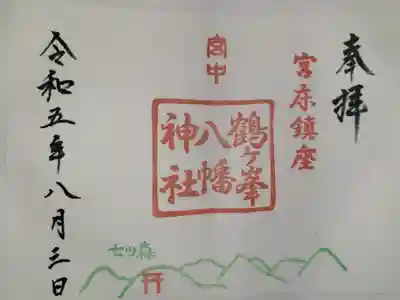 奉拝
宮床鎮座
宮中
鶴ケ峯
八幡
神社
七ツ森
令和五年八月三日